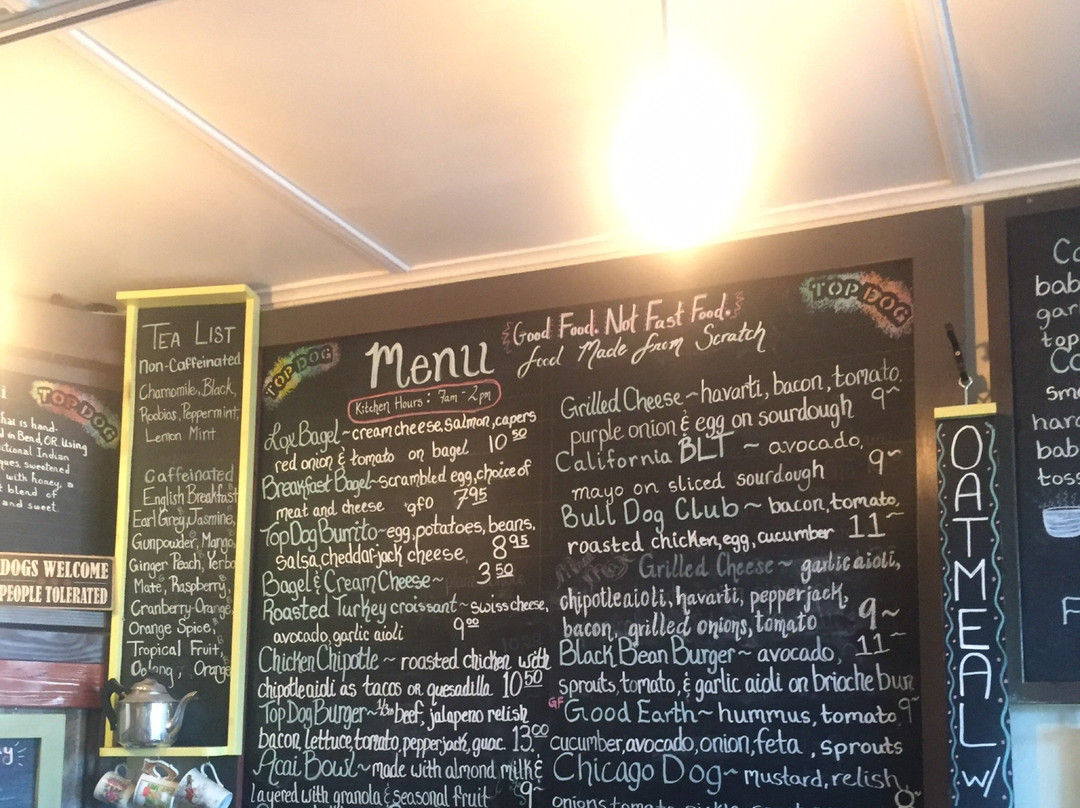 TOP DOG
hai is hand-
d in Bend, OR Using
itional Indian
ques, sweetened
with honey, a
t blend of
and sweet
DOGS WELCOME
PEOPLE TOLERATED
TEA LIST
Non-Caffeinated
Chamomile, Black,
Roobios, Peppermint,
Lemon Mint
Caffeinated
English Breakfast
Earl Grey, Jasmine,
Gunpowder, Mango,
Ginger Peach, Yerba
Mate, Raspberry,
Cranberry-Orange,
Orange Spice,
Tropical Fruit,
Oolong, Orange
TOP DOG
Menu
Kitchen Hours: 7am - 2pm
Good Food. Not Fast Food.
food Made from Scratch
TOP DOG
Lox Bagel ~ cream cheese, salmon, capers
red onion & tomato on bagel 10 50
Breakfast Bagel ~ scrambled egg, choice of
meat and cheese gfo 7 95
Top Dog Burrito ~ egg, potatoes, beans,
salsa, cheddar-jack cheese, 8 95
Bagel & Cream Cheese ~ 3 50
Roasted Turkey croissant ~ swiss cheese,
avocado, garlic aioli 9 00
Chicken Chipotle ~ roasted chicken with
chipotle aioli as tacos or quesadilla 10 50
Top Dog Burger ~ beef, jalapeno relish
bacon, lettuce, tomato, pepperjack, guac. 13.00
Acai Bowl ~ made with almond milk &
layered with granola & seasonal fruit 9~
Grilled Cheese ~ havarti, bacon, tomato,
purple onion & egg on sourdough 9~
California BLT ~ avocado,
mayo on sliced sourdough 9~
Bull Dog Club ~ bacon, tomato,
roasted chicken, egg, cucumber 11~
Grilled Cheese ~ garlic aioli,
chipotle aioli, havarti, pepperjack,
bacon, grilled onions, tomato 9~
Black Bean Burger ~ avocado, 11~
sprouts, tomato, & garlic aioli on brioche bun
GF Good Earth ~ hummus, tomato, 9~
cucumber, avocado, onion, feta, sprouts
Chicago Dog ~ mustard, relish,
OATMEAL